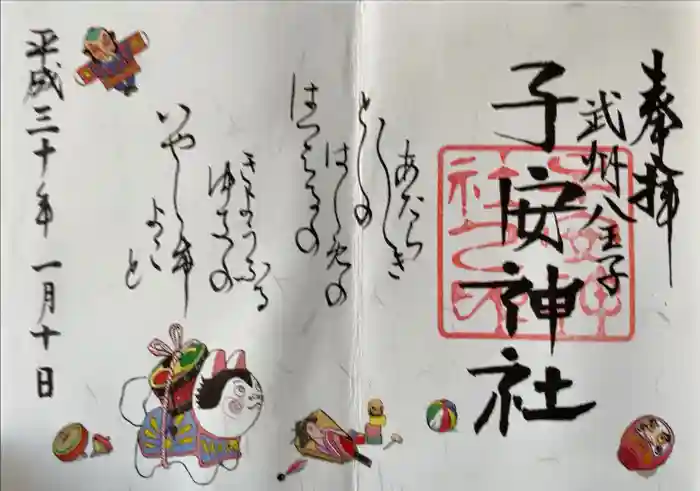 奉拝
武州八王子
子安神社
あたらしき
としの
はじめの
はつはるの
きょうふる
ゆきの
いやしけ
よごと
平成三十年一月十日